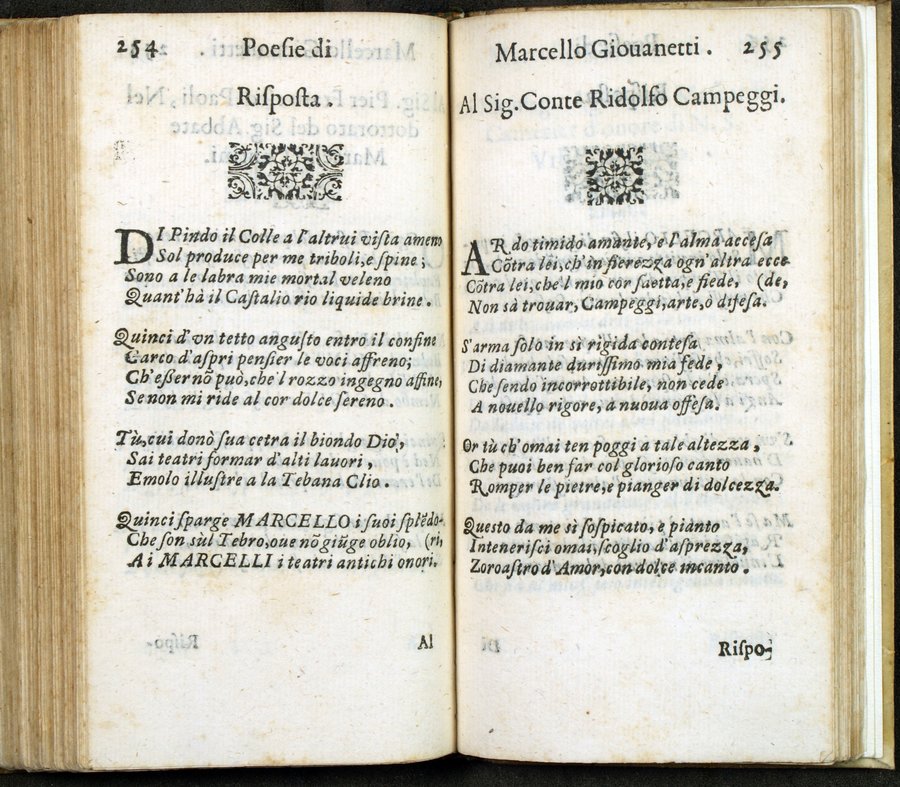 254 Poesie di
Risposta.
DI Pindo il Colle a l'altrui vista ameno
Sol produce per me triboli, e spine;
Sono a le labra mie mortal veleno
Quant' hà il Castalio rio liquide brine.
Quinci d'vn tetto angusto entro il confine
Carco d'aspri pensier le voci affreno;
Ch'esser nõ può, che'l rozzo ingegno affine,
Se non mi ride al cor dolce sereno.
Tù, cui donò sua cetra il biondo Dio,
Sai teatri formar d'alti lauori,
Emolo illustre a la Tebana Clio.
Quinci sparge MARCELLO i suoi splẽdo-
Che son sùl Tebro, oue nõ giũge oblio, (ri,
Ai MARCELLI i teatri antichi onori.
Al
Marcello Giouanetti. 255
Al Sig. Conte Ridolfo Campeggi.
ARdo timido amante, e l'alma accesa
Cõtra lei, ch'in fierezza ogn'altra ecce-
Cõtra lei, che'l mio cor saetta, e fiede, (de,
Non sà trouar, Campeggi, arte, ò difesa.
S'arma solo in si rigida contesa
Di diamante durissimo mia fede,
Che sendo incorrottibile, non cede
A nouello rigore, a nuoua offesa.
Or tù ch'omai ten poggi a tale altezza,
Che puoi ben far col glorioso canto
Romper le pietre, e pianger di dolcezza.
Questo da me sì sospicato, e pianto
Intenerisci omai, scoglio d'asprezza,
Zoroastro d'Amor, con dolce incanto.
Rispo-